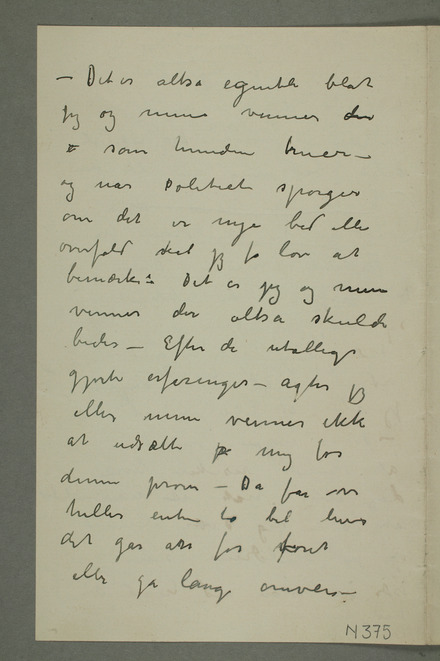 – Det er altsa egentlig blot
jeg og mine venner der
som hunden truer –
og nar Politiet spørger
om det er nye bid eller
overfald skal jeg fa lov at
bemærke: Det er jeg og mine
venner der altsa skulde
bides – Efter de utallige
gjorte erfaringer – agter jeg
eller mine venner ikke
at udsætte mig for
denne prøve – Da far vi
heller enten ta bil hvis
det gar an for
eller ga lange omveie –
N 375